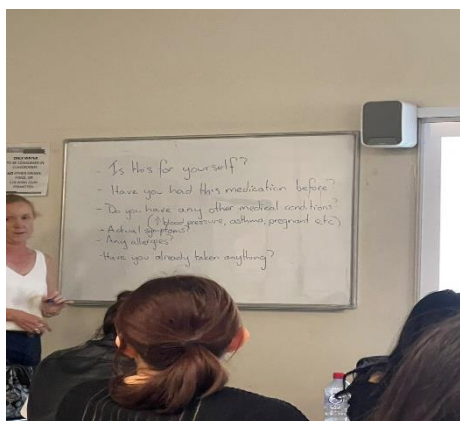 - Is this for yourself?
- Have you had this medication before?
- Do you have any other medical conditions?
(↑ blood pressure, asthma, pregnant etc)
- Actual symptoms?
- Any allergies?
- Have you already taken anything?
ONLY WATER